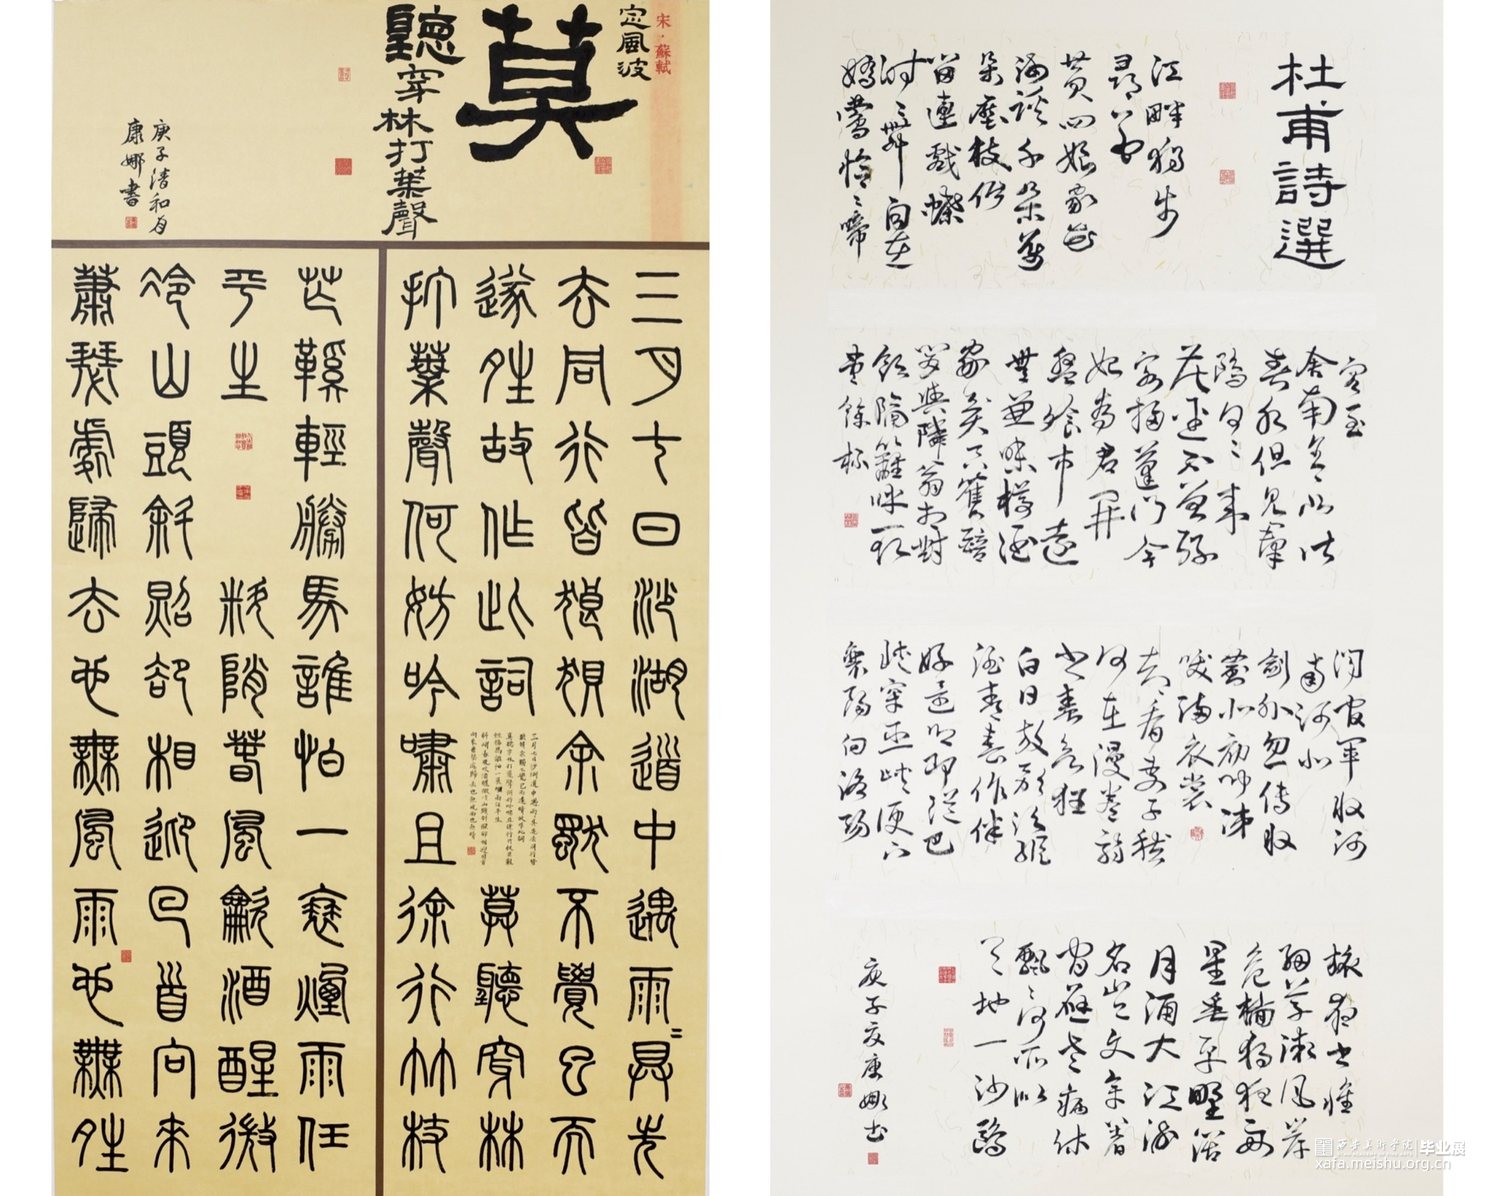 宋·蘇軾
定風波
莫
聽穿林打葉聲
庚子清和月
康娜書
三月七日沙湖道中遇雨〻具先
去同行皆狼狽余獨不覺已而
遂晴故作此詞 莫聽穿林
打葉聲何妨吟嘯且徐行竹杖
芒鞵輕勝馬誰怕一蓑煙雨任
平生 料峭春風吹酒醒微
冷山頭斜照卻相迎回首向來
蕭瑟處歸去也無風雨也無晴
杜甫詩選
江畔獨步
尋花
黃四娘家花
滿蹊千朵萬
朵壓枝低
留連戲蝶
時〻舞自在
嬌鶯恰〻啼
客至
舍南舍北皆
春水但見群
鷗日〻來
花逕不曾緣
客掃蓬門今
始為君開
盤飧市遠
無兼味樽酒
家貧只舊醅
肯與鄰翁相對
飲隔籬呼取
盡餘杯
聞官軍收河
南河北
劍外忽傳收
薊北初聞涕
淚滿衣裳
卻看妻子愁
何在漫卷詩
書喜欲狂
白日放歌須縱
酒青春作伴
好還鄉即從巴
峽穿巫峽便下
襄陽向洛陽
旅夜書懷
細草微風岸
危檣獨夜舟
星垂平野闊
月涌大江流
名豈文章著
官應老病休
飄〻何所似
天地一沙鷗
庚子夏康娜書
西安美術學院 毕业展
xafa.meishu.org.cn